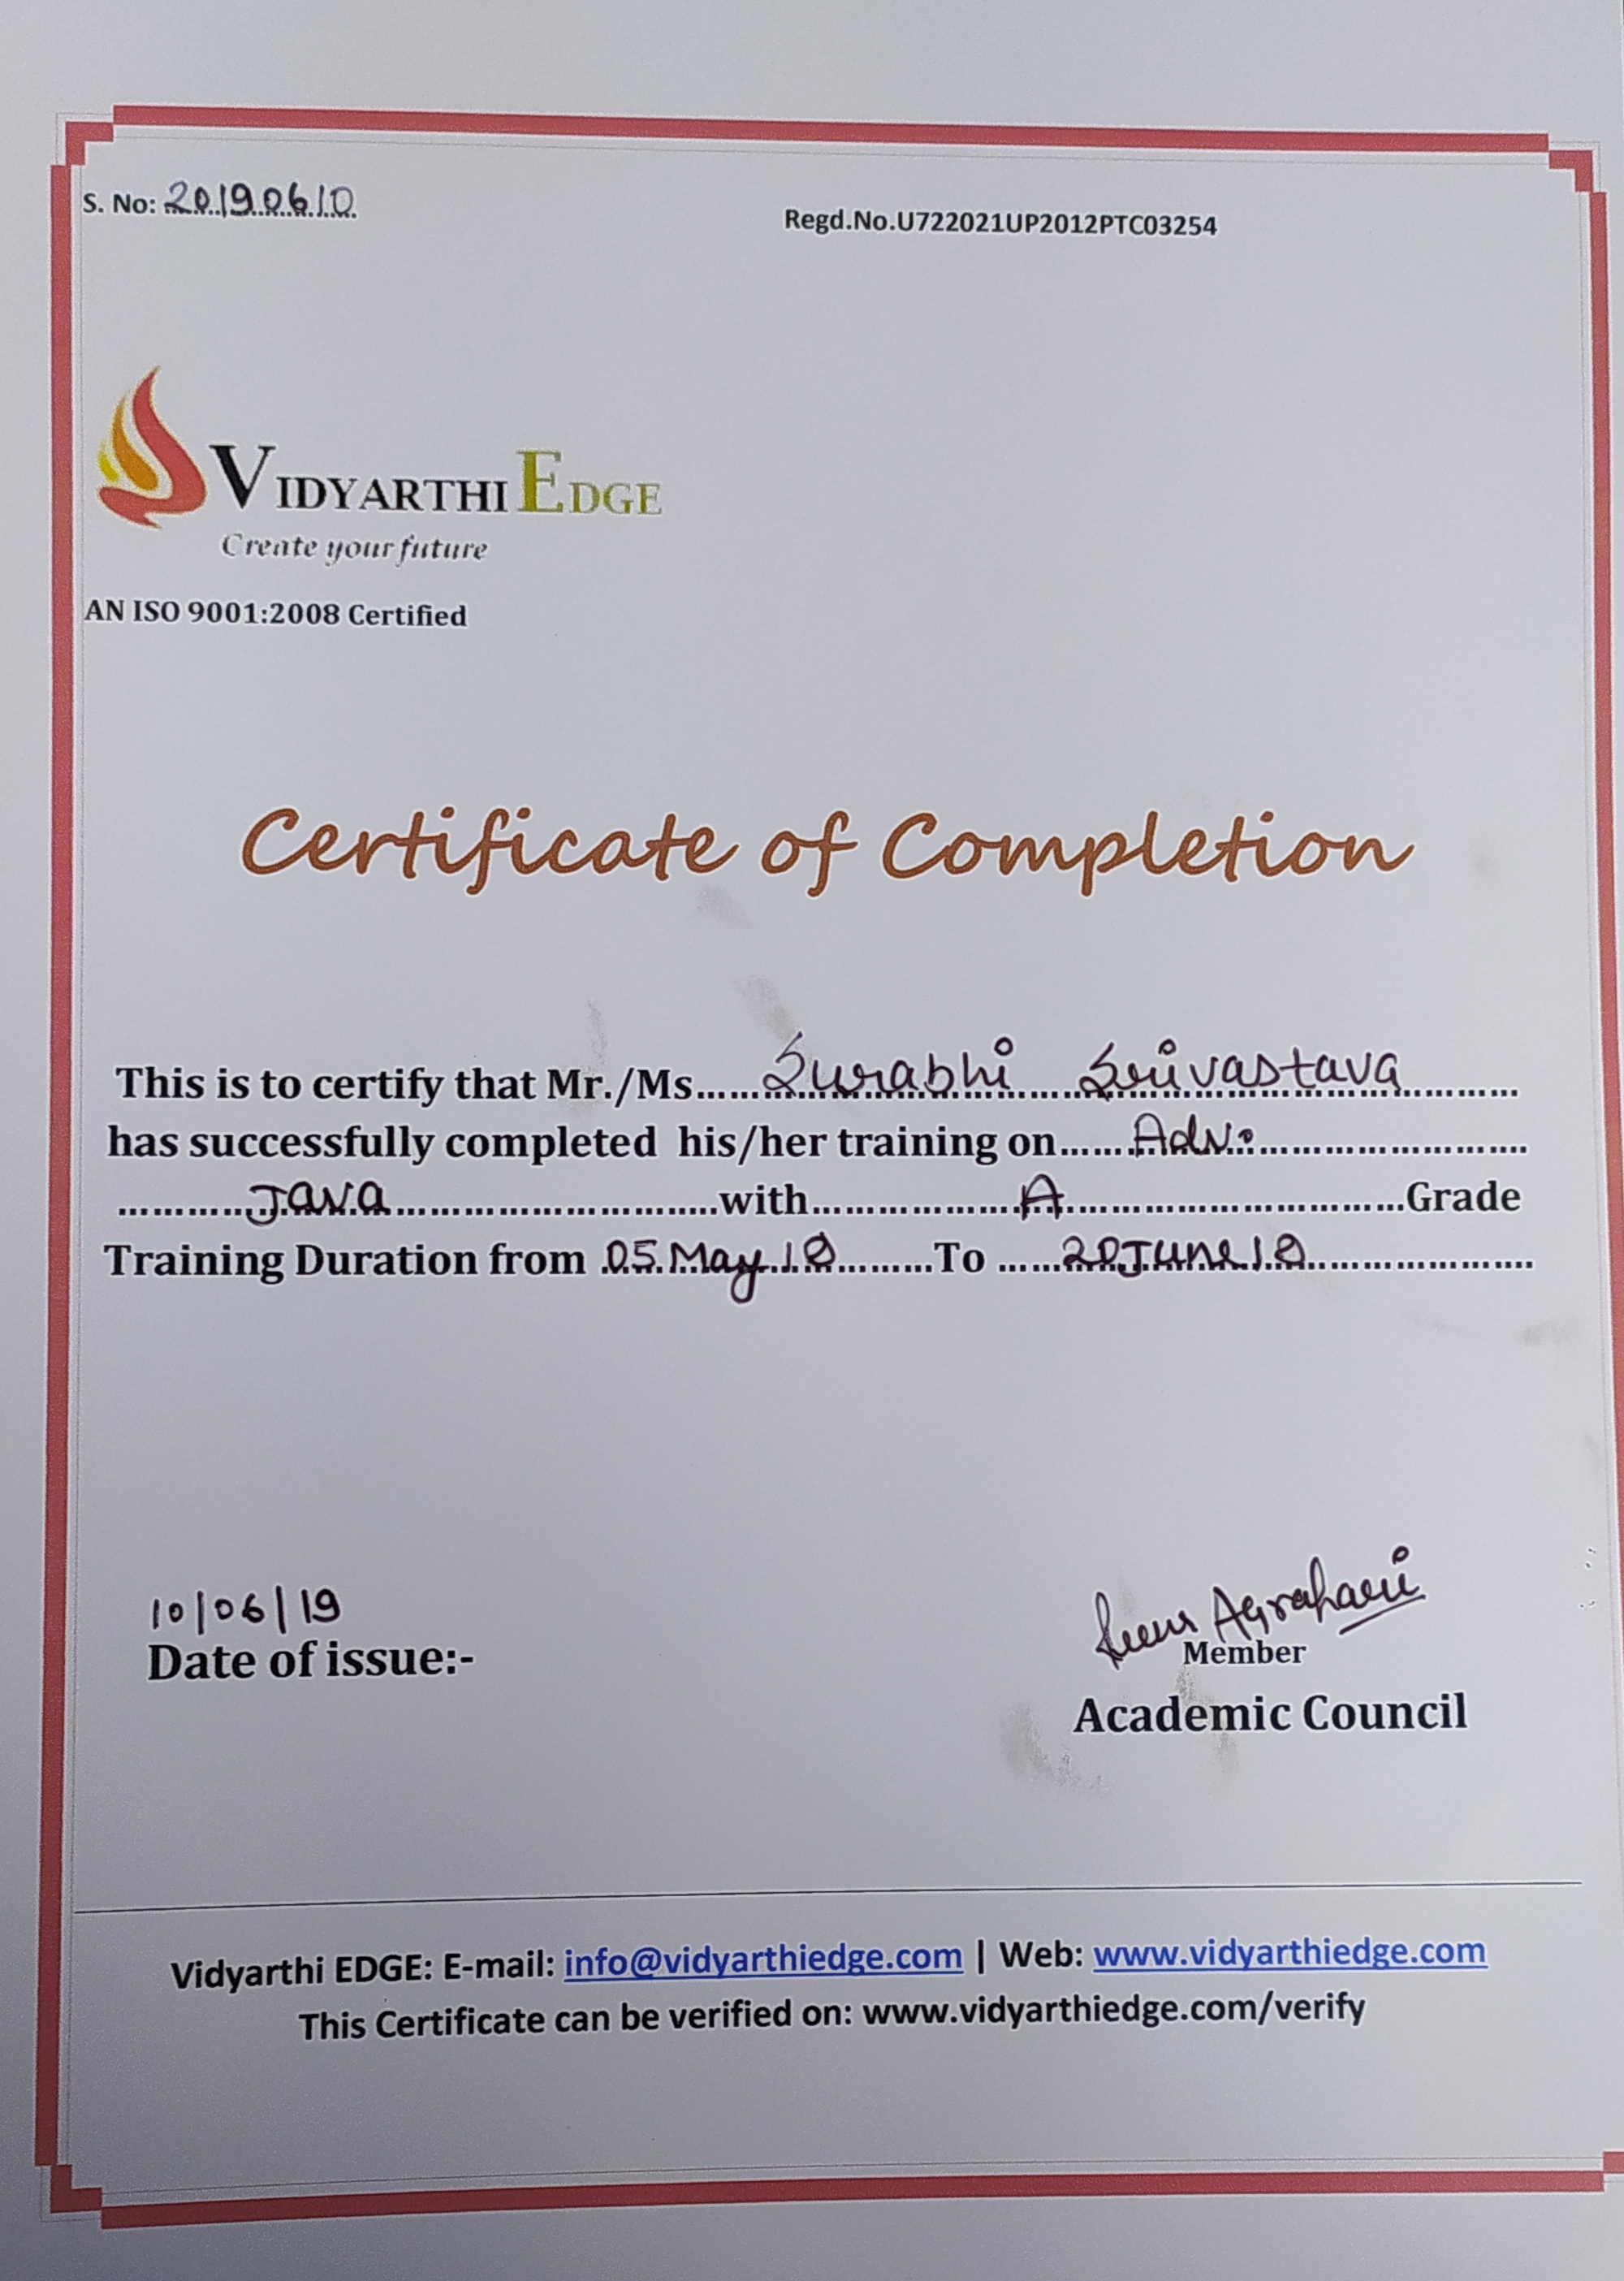 S. No: 20190610
Regd.No.U722021UP2012PTC03254
VIDYARTHI EDGE
Create your future
AN ISO 9001:2008 Certified
Certificate of Completion
This is to certify that Mr./Ms......Surabhi Srivastava............
has successfully completed his/her training on......Adv...............................
............Java.................................with....................A..................................Grade
Training Duration from 05 May 18.........To ......20 June 18.......................
10/06/19
Date of issue:-
Agrahari
Member
Academic Council
Vidyarthi EDGE: E-mail: info@vidyarthiedge.com | Web: www.vidyarthiedge.com
This Certificate can be verified on: www.vidyarthiedge.com/verify